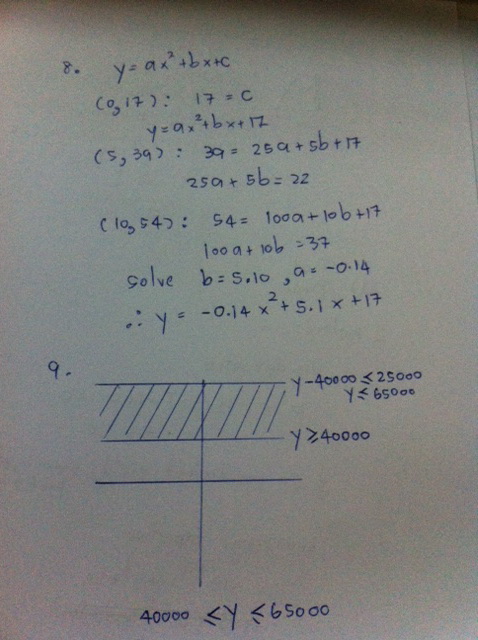 8. y = ax² + bx + c
(0,17): 17 = c
y = ax² + bx + 17
(5,39): 39 = 25a + 5b + 17
25a + 5b = 22
(10,54): 54 = 100a + 10b + 17
100a + 10b = 37
solve b = 5.10, a = -0.14
∴ y = -0.14x² + 5.1x + 17
9.
y - 40000 ≤ 25000
y ≤ 65000
y ≥ 40000
40000 ≤ y ≤ 65000